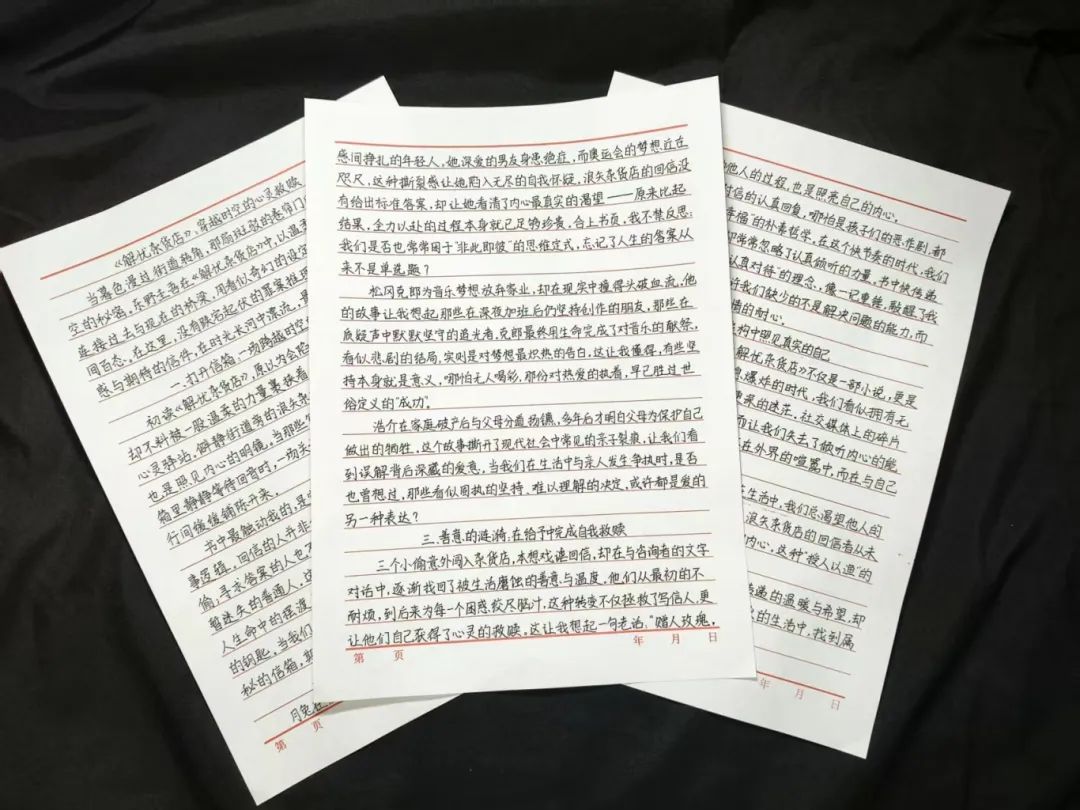 《解忧杂货店》：穿越时空的心灵救赎
当暮色漫过街道转角，那扇斑驳的卷帘门
空的秘密。在东野圭吾《解忧杂货店》中，以温
连接过去与现在的桥梁，用看似奇幻的设定
间百态。在这里，没有跌宕起伏的罪案推理
惑与期待的信件，在时光长河中漂流，最
一、打开信箱：一场跨越时空
初读《解忧杂货店》，原以为会陷
却不料被一股温柔的力量裹挟着
心灵驿站。僻静街道旁的浪矢杂
也是照见内心的明镜。当那些
箱里静静等待回音时，一场关
行间缓缓铺陈开来。
书中最触动我的，是
事逻辑。回信的人并非
偷，寻求答案的人也不
能迷失的普通人。这
人生命中的摆渡
的钥匙。当我们
秘的信箱，期
月兔在
第 页
感间挣扎的年轻人，她深爱的男友身患绝症，而奥运会的梦想近在
咫尺，这种撕裂感让她陷入无尽的自我怀疑。浪矢杂货店的回信没
有给出标准答案，却让她看清了内心最真实的渴望——原来比起
结果，全力以赴的过程本身就已足够珍贵。合上书页，我不禁反思：
我们是否也常常困于“非此即彼”的思维定式，忘记了人生的答案从
来不是单选题？
松冈克郎为音乐梦想放弃家业，却在现实中撞得头破血流。他
的故事让我想起那些在深夜加班后仍坚持创作的朋友，那些在
质疑声中默默坚守的追光者。克郎最终用生命完成了对音乐的献祭，
看似悲剧的结局，实则是对梦想最炽热的告白。这让我懂得，有些坚
持本身就是意义，哪怕无人喝彩，那份对热爱的执着，早已胜过世
俗定义的“成功”。
浩介在家庭破产后与父母分道扬镳，多年后才明白父母为保护自己
做出的牺牲。这个故事撕开了现代社会中常见的亲子裂痕，让我们看
到误解背后深藏的爱意。当我们在生活中与亲人发生争执时，是否
也曾想过，那些看似固执的坚持、难以理解的决定，或许都是爱的
另一种表达？
三、善意的涟漪：在给予中完成自我救赎
三个小偷意外闯入杂货店，本想戏谑回信，却在与咨询者的文字
对话中，逐渐找回了被生活磨蚀的善意与温度。他们从最初的不
耐烦，到后来为每个困惑绞尽脑汁，这种转变不仅拯救了写信人，更
让他们自己获得了心灵的救赎。这让我想起一句老话：“赠人玫瑰，
第 页 年 月 日
他人的过程，也是照亮自己的内心。
信的认真回复，哪怕是孩子们的恶作剧，都
幸福”的朴素哲学。在这个快节奏的时代，我们
却常常忽略了认真倾听的力量。书中快传递
认真对待”的理念，像一记重锤，敲醒了我
许我们缺少的不是解决问题的能力，而
情的耐心。
构中照见真实的自己
解忧杂货店》不仅是一部小说，更是
息爆炸的时代，我们看似拥有无
来的迷茫。社交媒体上的碎片
而让我们失去了倾听内心的能
在外界的喧嚣中，而在与自己
生活中，我们总渴望他人的
浪矢杂货店的回信者从未
内心。这种“授人以渔”的
递的温暖与希望，却
的生活中，找到属
年 月 日